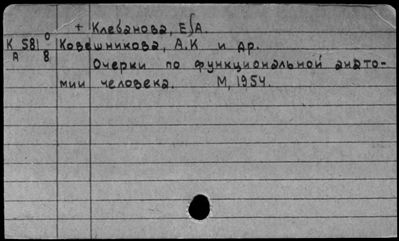 + Клебанова, Е.А.
К 581 0 Ковешникова, А.К и др.
А 8 Очерки по функциональной анато-
мии человека. М, 1954.